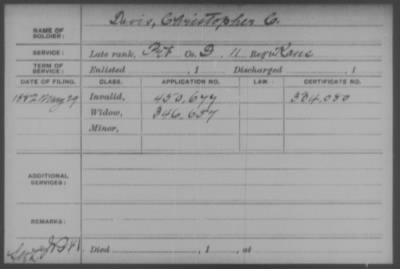 Davis, Christopher C.
NAME OF SOLDIER:
SERVICE: Late rank, Pvt Co. D, 11 Reg't Kans
TERM OF SERVICE: Enlisted , 1 Discharged , 1
DATE OF FILING. CLASS. APPLICATION NO. LAW. CERTIFICATE NO.
1882 May 29 Invalid, 450,677 304,080
Widow, 346,657
Minor,
ADDITIONAL SERVICES:
REMARKS:
Died , 1 , at